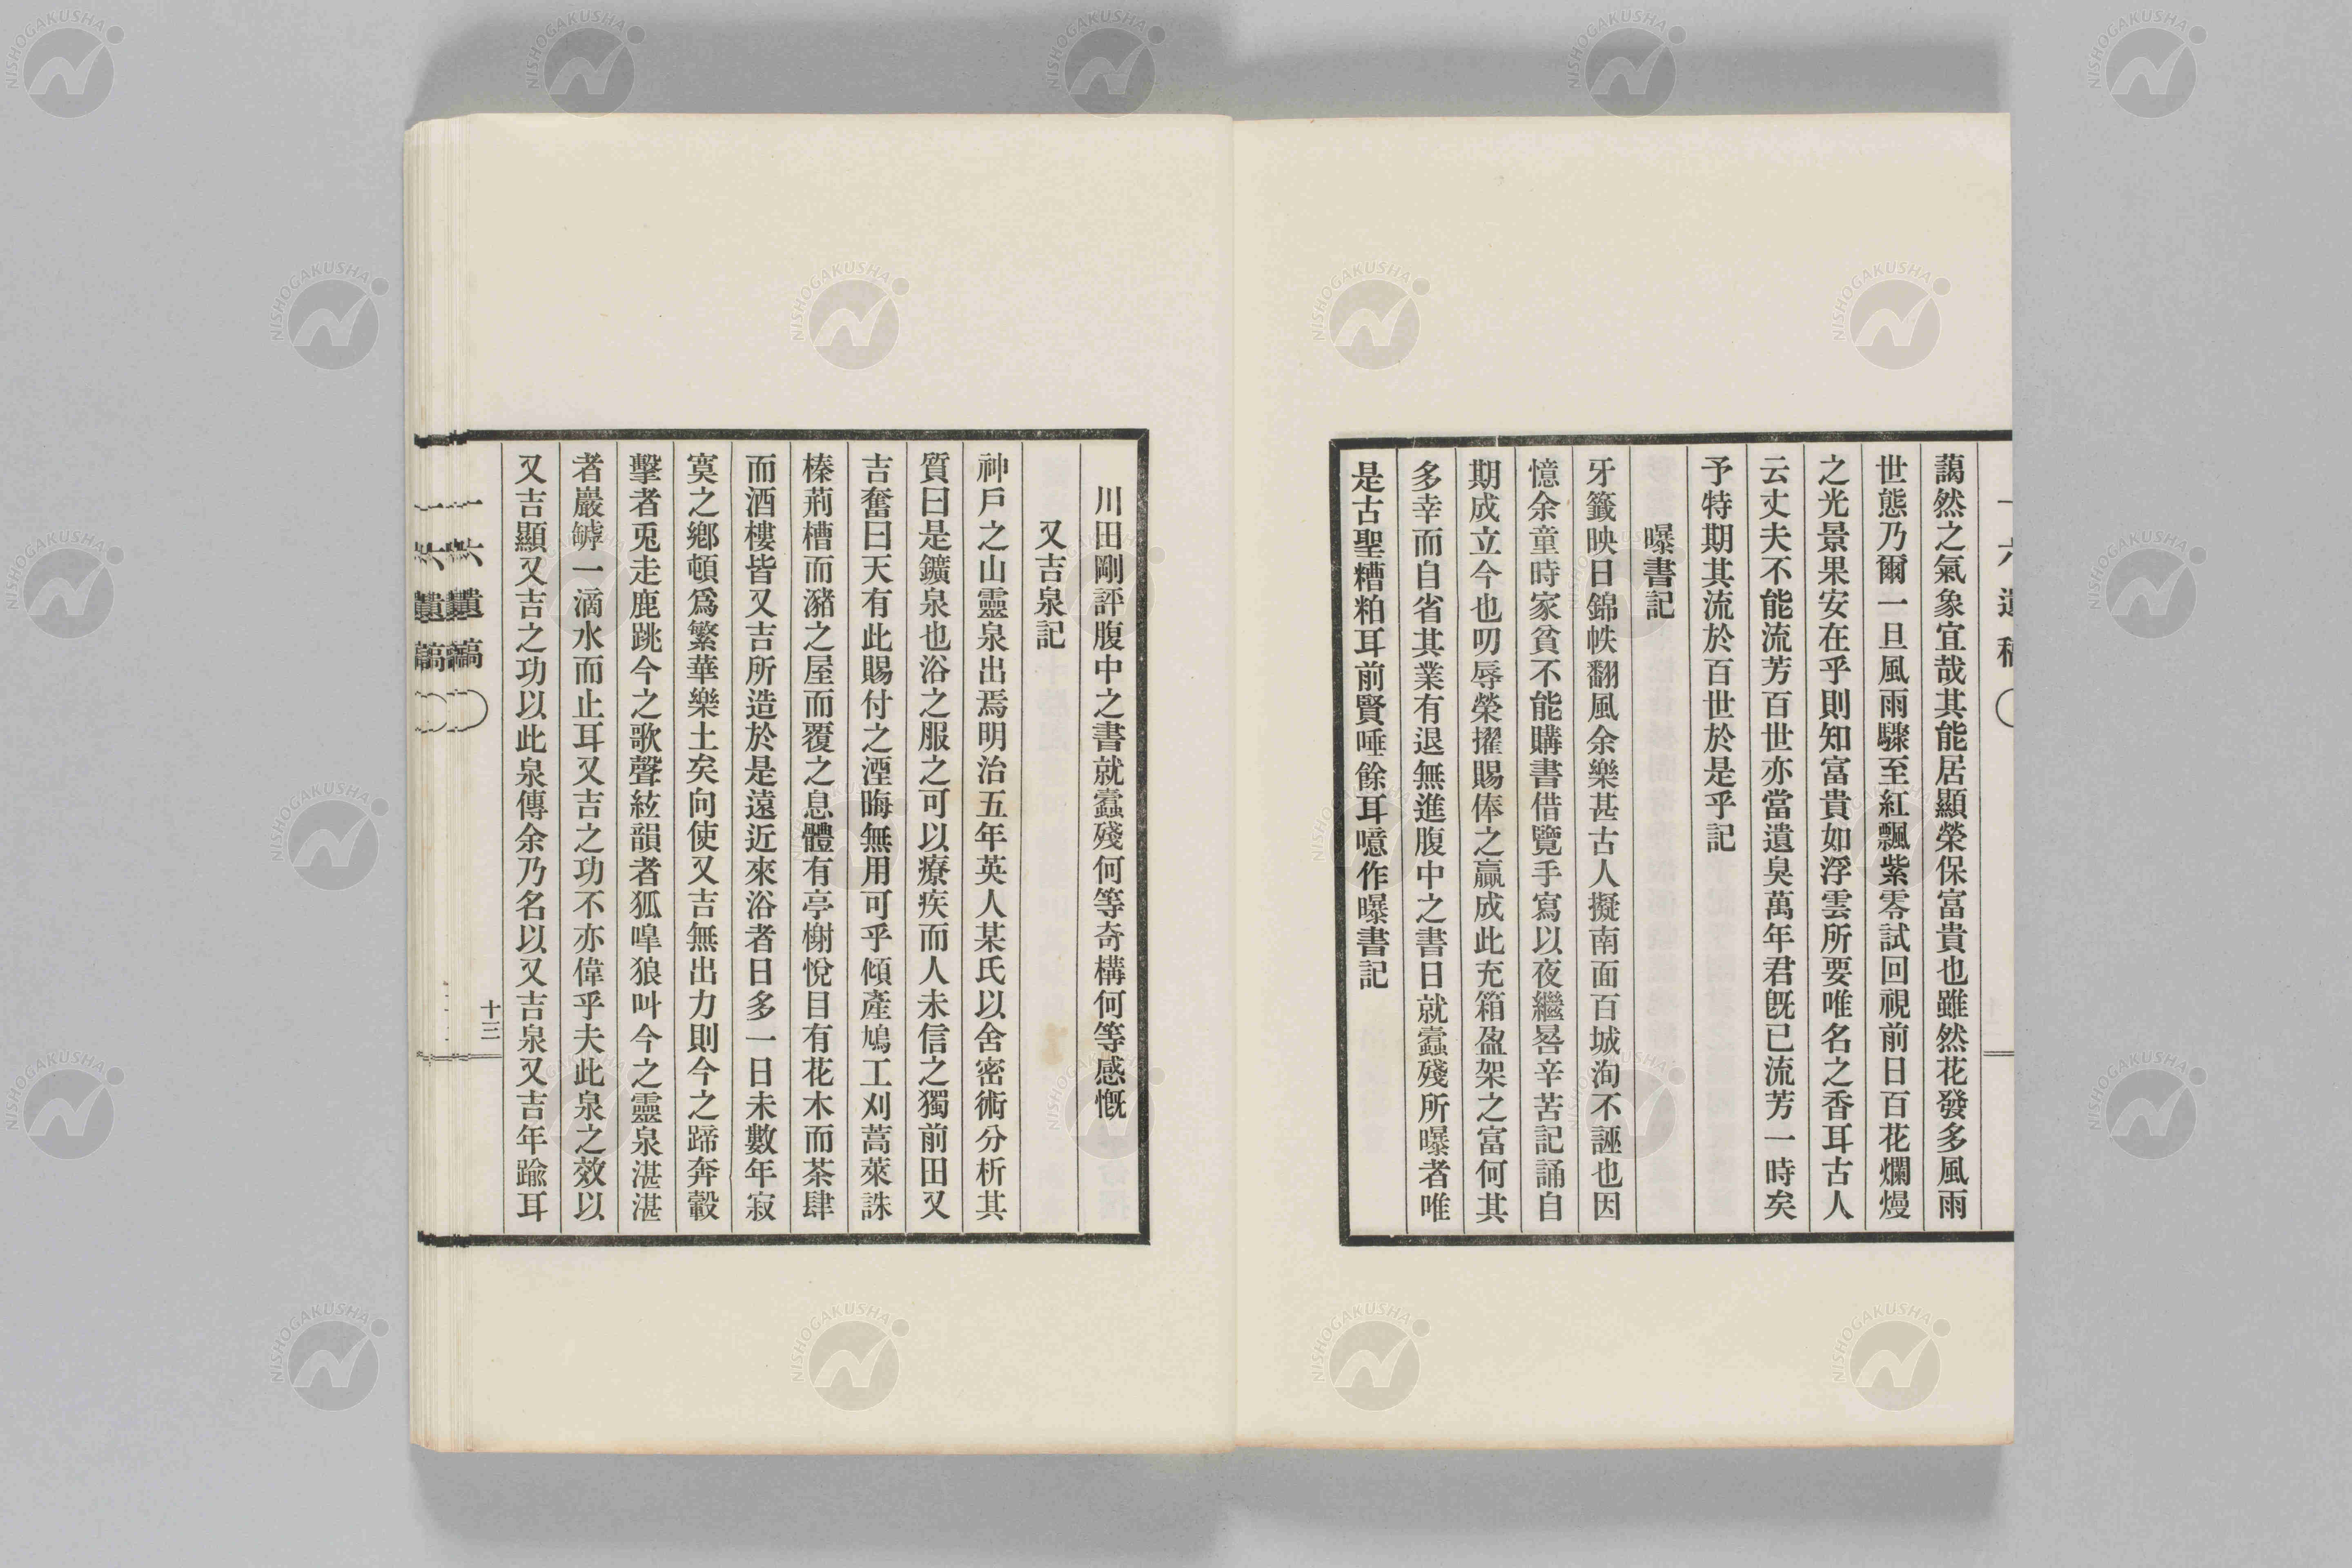 藹然之氣象宜哉其能居顯榮保富貴也雖然花發多風雨
世態乃爾一旦風雨驟至紅飄紫零試回視前日百花爛熳
之光景果安在乎則知富貴如浮雲所要唯名之香耳古人
云丈夫不能流芳百世亦當遺臭萬年君旣已流芳一時矣
予特期其流於百世於是乎記
曝書記
牙籤映日錦帙翻風余樂甚古人擬南面百城洵不誣也因
憶余童時家貧不能購書借覽手寫以夜繼晷辛苦記誦自
期成立今也叨辱榮擢賜俸之贏成此充箱盈架之富何其
多幸而自省其業有退無進腹中之書日就蠹殘所曝者唯
是古聖糟粕耳前賢唾餘耳噫作曝書記
川田剛評腹中之書就蠹殘何等奇構何等感慨
又吉泉記
神戶之山靈泉出焉明治五年英人某氏以舍密術分析其
質曰是鑛泉也浴之服之可以療疾而人未信之獨前田又
吉奮曰天有此賜付之湮晦無用可乎傾產鳩工刈蒿萊誅
榛荊槽而瀦之屋而覆之息體有亭榭悅目有花木而茶肆
而酒樓皆又吉所造於是遠近來浴者日多一日未數年寂
寞之鄕頓爲繁華樂土矣向使又吉無出力則今之蹄奔轂
擊者兎走鹿跳今之歌聲絃韻者狐嘷狼叫今之靈泉湛湛
者巖罅一滴水而止耳又吉之功不亦偉乎夫此泉之效以
又吉顯又吉之功以此泉傳余乃名以又吉泉又吉年踰耳
一六遺稿
十三
NISHOGAKUSHA